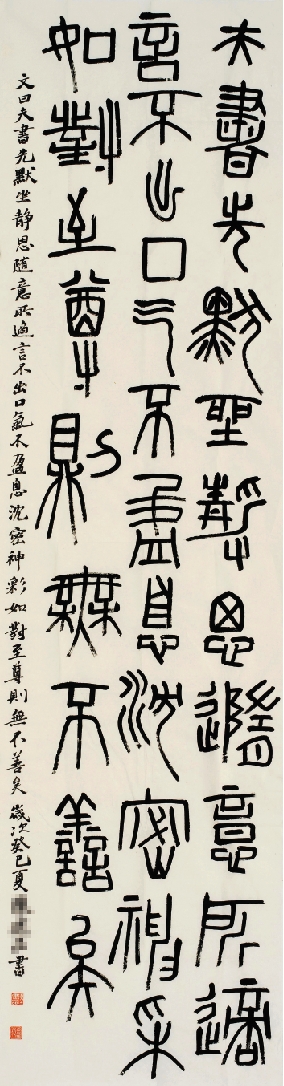 夫書先默坐静思隨意所適
言不出口气不盈息沈密神采
如對至尊則無不善矣
文曰夫書先默坐静思隨意所適言不出口氣不盈息沈密神彩如對至尊則無不善矣歲次癸巳夏書